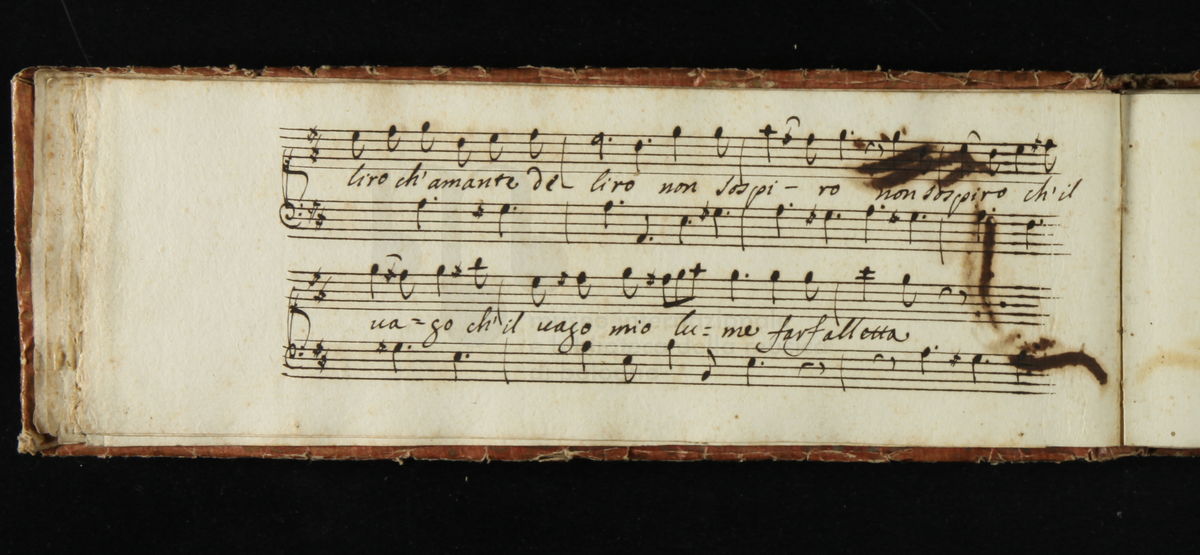 liro ch'amante de liro non sospi - ro non sospiro ch'il
va = go ch'il vago mio lu = me farfalletta